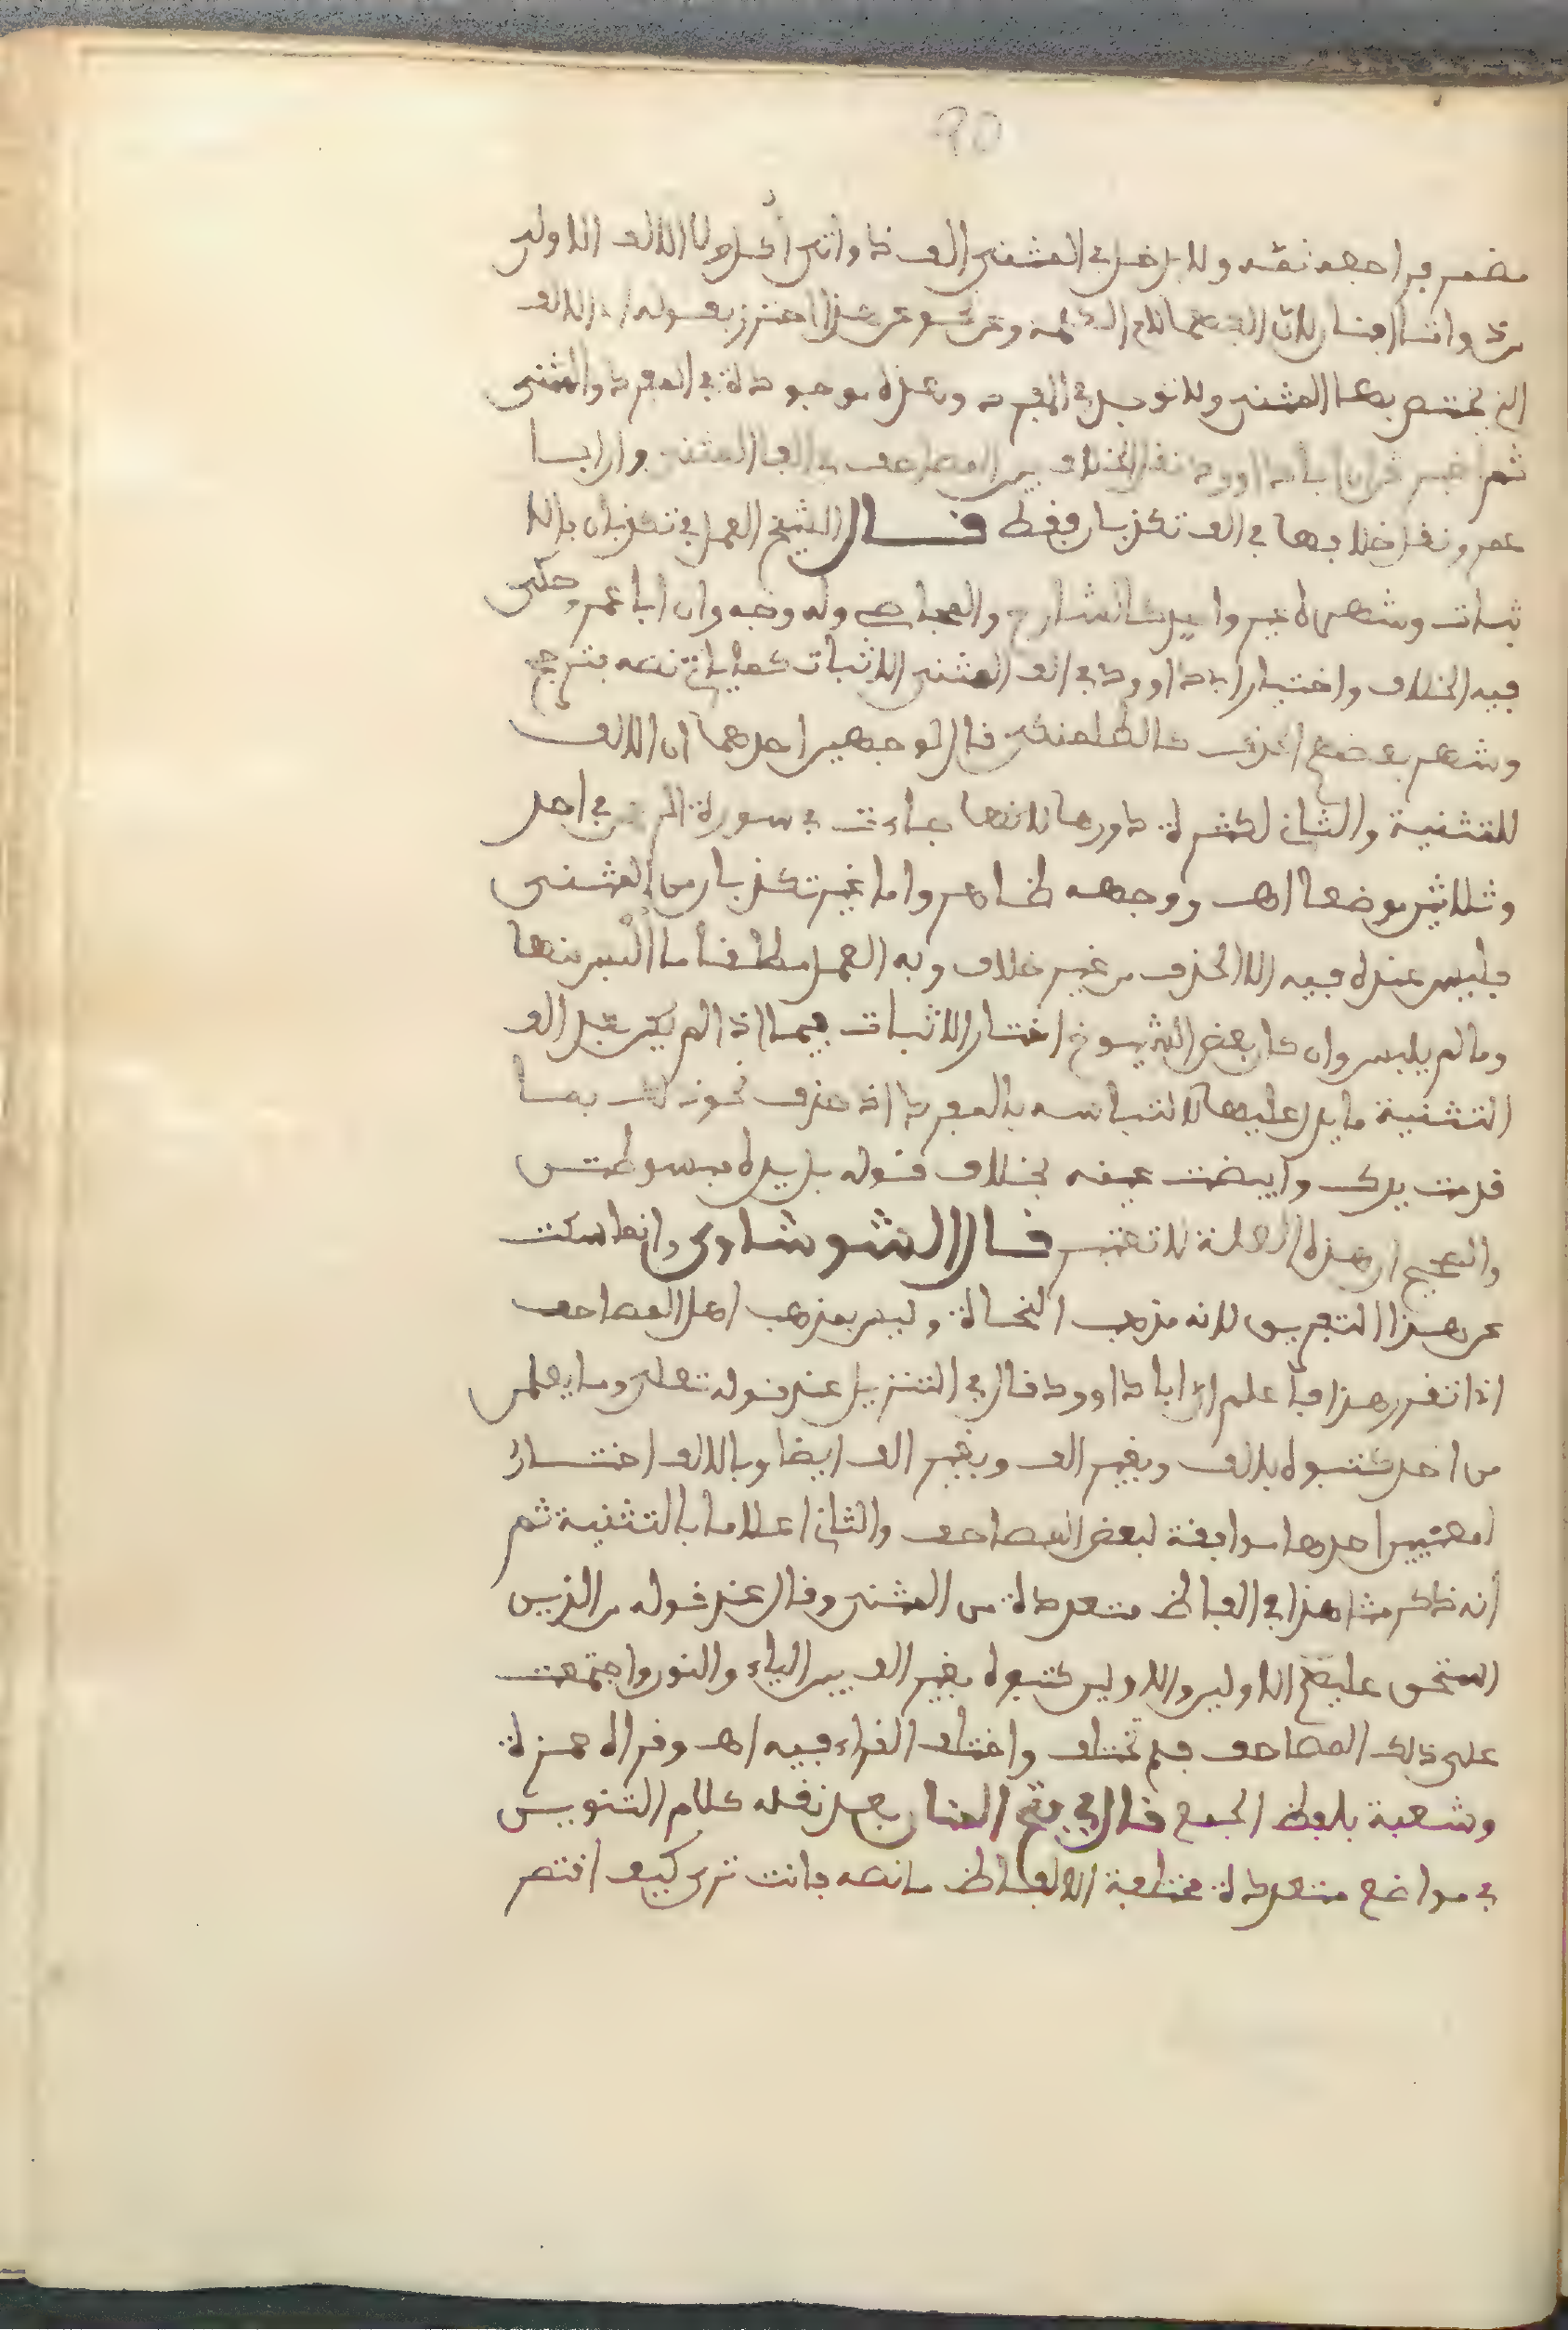 90
مضمر فراجعه تقف ولا يدخل في المثنى الف ذواتى اكل ولا الالف الاولى
من وانسا لان الفهما لام الكلمة وعن هذا احترز بقوله الالف
التي يختص بها المثنى ولا توجد في المفرد وهذه موجودة في المفرد والمثنى
ثم اخبر ان ابا داوود نقل الخلاف بين المصاحف في الف المثنى وان ابا
عمرو نقل خلافها في الف تكذبان فقط قال الشيخ العمل في تكذبان بالا
ثبات وشهره غير واحد كالشارح والمجاصي وله وجه وان ابا عمرو حكى
فيه الخلاف واختيار ابي داوود في الف المثنى الاثبات كما ياتي نصه بترجيح
وشهر بعضهم الحذف كالطلمنكي قال لوجهين احدهما ان الالف
للتثنية والثاني لكثرة دورها لانها جاءت في سورة الرحمن في احد
وثلاثين موضعا اهـ ووجهه ظاهر واما غير تكذبان من المثنى
فليس عنده فيه الا الحذف من غير خلاف وبه العمل مطلقا ما البس منها
وما لم يلبس وان كان بعض الشيوخ اختار الاثبات فيما اذا لم يكن قبل الف
التثنية ما يدل عليها لالتباسه بالمفرد اذا حذف نحو ذلك بما
قدمت يدك وابيضت عينه بخلاف قوله بل يداه مبسوطتن
والصحيح ان هذه العلة لا تعتبر قال الشوشاوى وانما سكت
عن هذا التفريق لانه مذهب النحاة وليس بمذهب اهل المصاحف
اذا تقرر هذا فاعلم ان ابا داوود قال في التنزيل عند قوله تعلى وما يعلمن
من احد كتبوه بالف وبغير الف وبغير الف ايضا وبالالف اختار
لمعنيين احدهما موافقة لبعض المصاحف والثاني اعلاما بالتثنية ثم
انه ذكر مثل هذا في الفاظ متعددة من المثنى وقال عند قوله من الذين
استحق عليهم الاولين والاولين كتبوه بغير الف بين الياء والنون واجتمعت
على ذلك المصاحف فلم تختلف واختلف القراء فيه اهـ وقراه حمزة
وشعبة بلفظ الجمع قال في فتح المنان بعد نقله كلام التنزيل
في مواضع متعددة مختلفة الالفاظ ما نصه فانت ترى كيف اقتصر